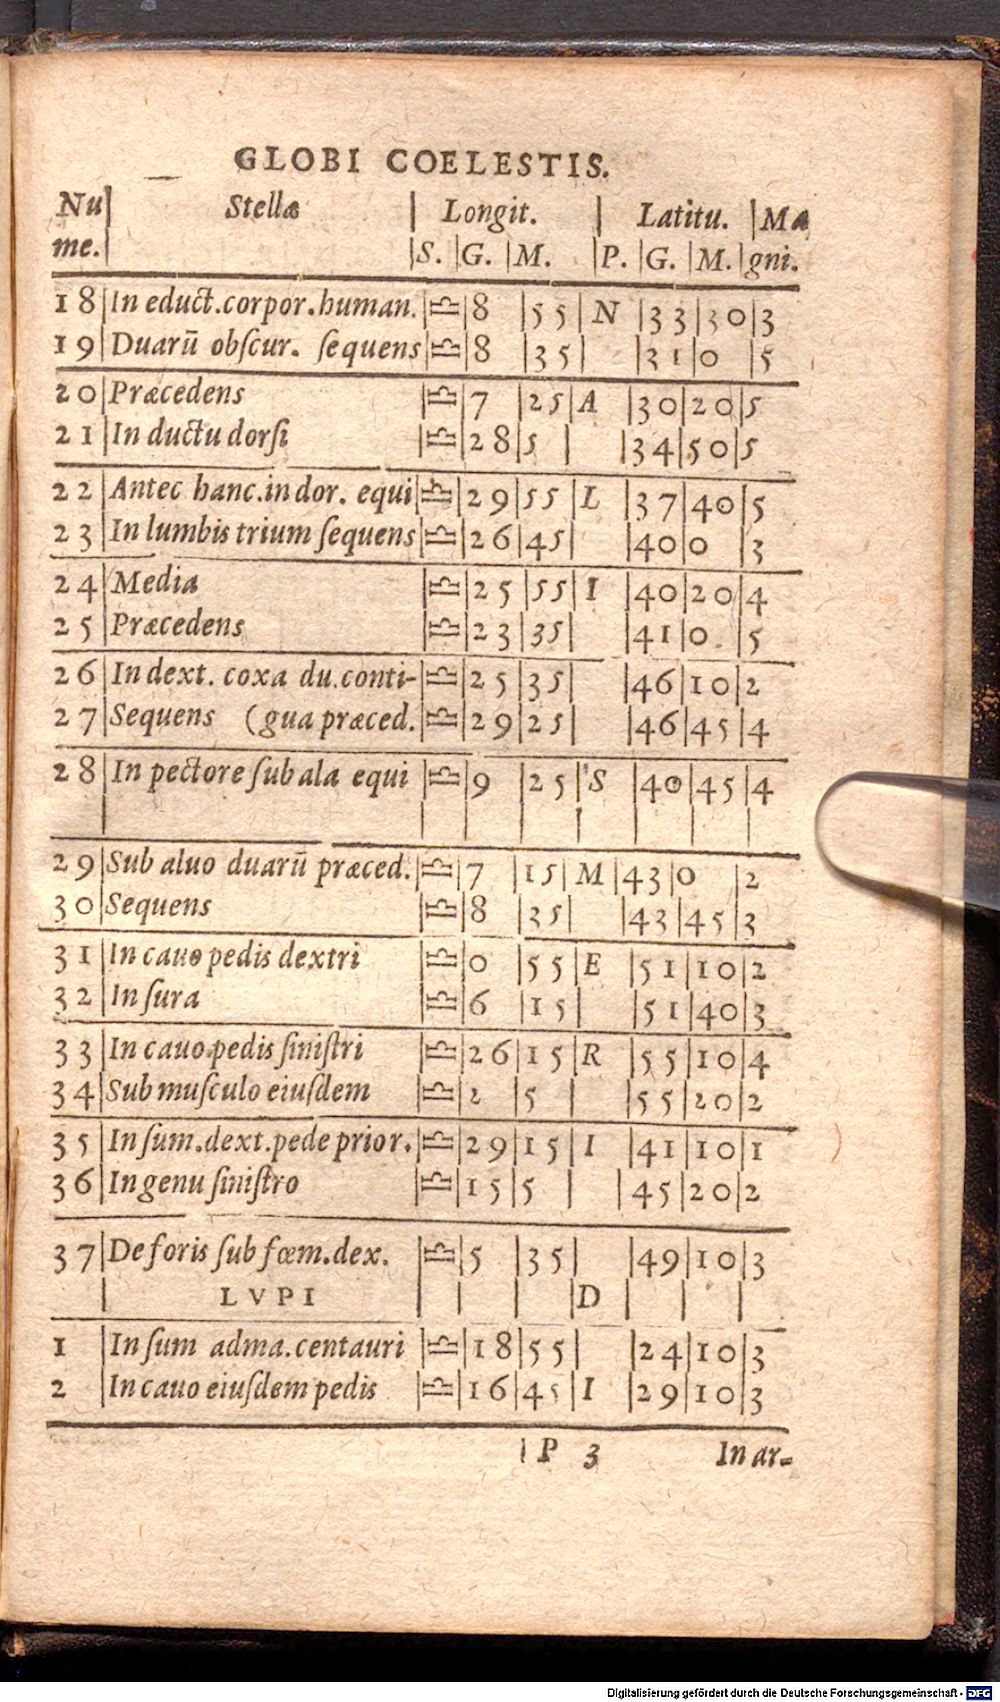 GLOBI COELESTIS.
Nu| Stellæ | Longit. | Latitu. |Ma
me.| |S. |G. |M. |P. |G. |M. |gni.
18|In educt.corpor.human.|♎|8 |55|N |33|30|3
19|Duarũ obſcur. ſequens|♎|8 |35| |31|0 |5
20|Præcedens |♎|7 |25|A |30|20|5
21|In ductu dorſi |♎|28|5 | |34|50|5
22|Antec hanc.in dor. equi|♎|29|55|L |37|40|5
23|In lumbis trium ſequens|♎|26|45| |40|0 |3
24|Media |♎|25|55|I |40|20|4
25|Præcedens |♎|23|35| |41|0. |5
26|In dext. coxa du.conti-|♎|25|35| |46|10|2
27|Sequens (gua præced.|♎|29|25| |46|45|4
28|In pectore ſub ala equi |♎|9 |25|S |40|45|4
29|Sub aluo duarũ præced.|♎|7 |15|M |43|0 |2
30|Sequens |♎|8 |35| |43|45|3
31|In cauo pedis dextri |♎|0 |55|E |51|10|2
32|In ſura |♎|6 |15| |51|40|3
33|In cauo pedis ſiniſtri |♎|26|15|R |55|10|4
34|Sub muſculo eiuſdem |♎|2 |5 | |55|20|2
35|In ſum.dext.pede prior.|♎|29|15|I |41|10|1
36|In genu ſiniſtro |♎|15|5 | |45|20|2
37|De foris ſub fœm.dex. |♎|5 |35| |49|10|3
| LVPI | | | |D | | |
1 |In ſum adma.centauri |♎|18|55| |24|10|3
2 |In cauo eiuſdem pedis |♎|16|45|I |29|10|3
P 3 In ar-
Digitalisierung gefördert durch die Deutsche Forschungsgemeinschaft - DFG